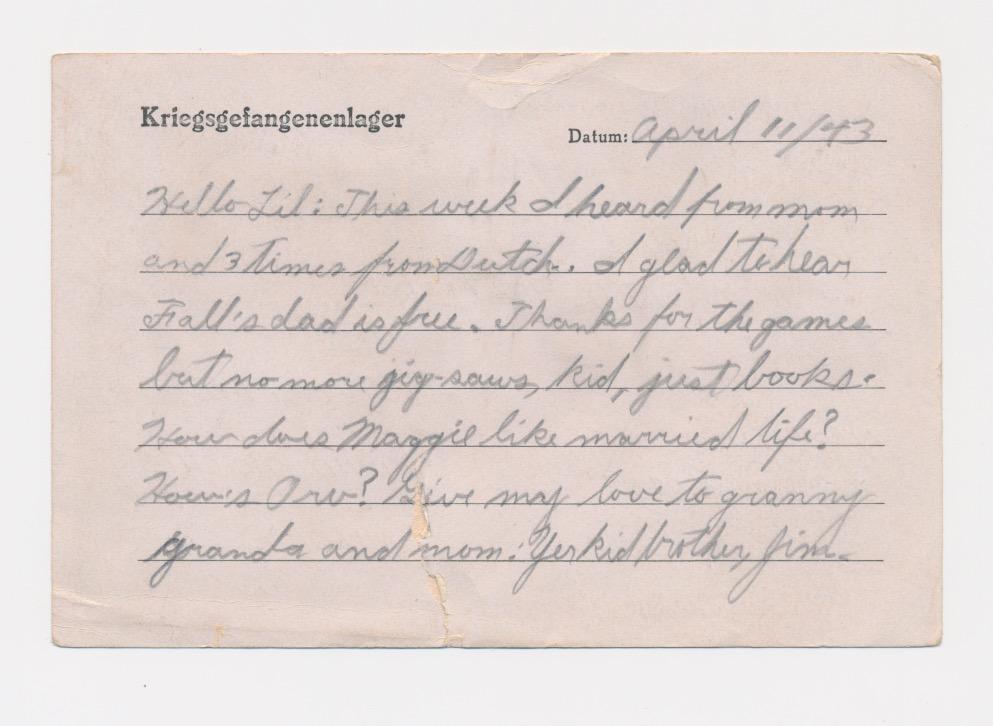 Kriegsgefangenenlager
Datum: April 11/43
Hello Lil: This week I heard from mom
and 3 times from Dutch. I glad to hear
Fall's dad is free. Thanks for the games
but no more jig-saws, kid, just books.
How does Maggie like married life?
How's Orv? Give my love to granny
granda and mom. Yer kid brother, Jim.